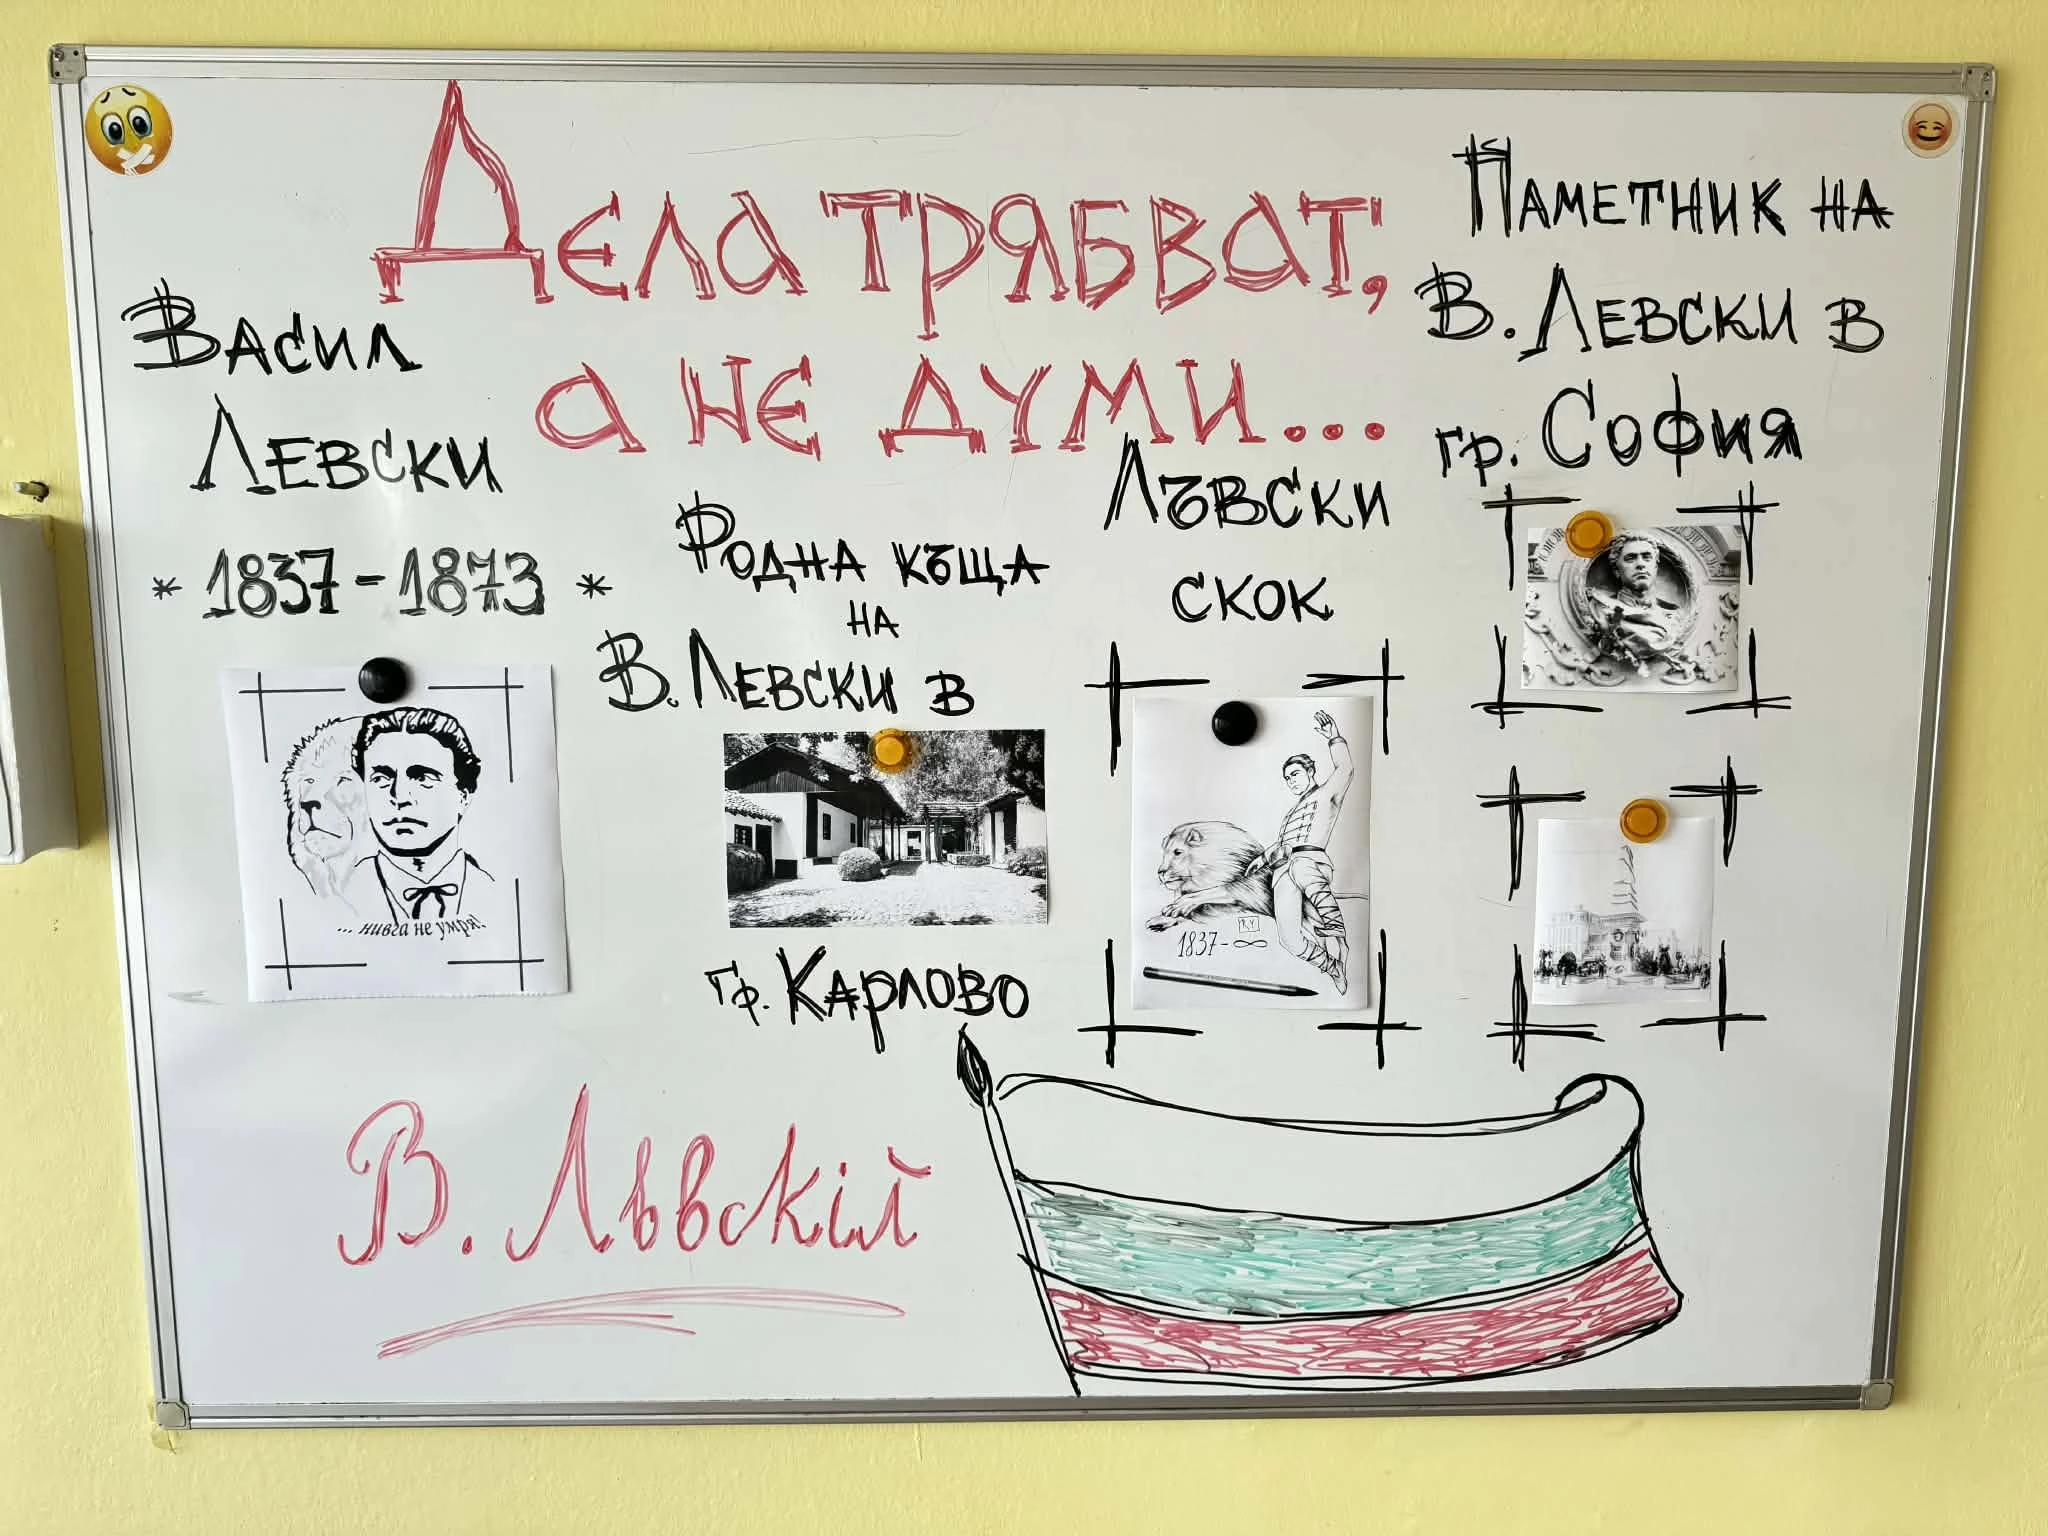 Дела трябват,
а не думи...
Васил
Левски
* 1837-1873 *
... нивга не умря!
Родна къща
на
В. Левски в
гр. Карлово
Лъвски
скок
1837-∞
Паметник на
В. Левски в
гр. София
В. Лѣвскій